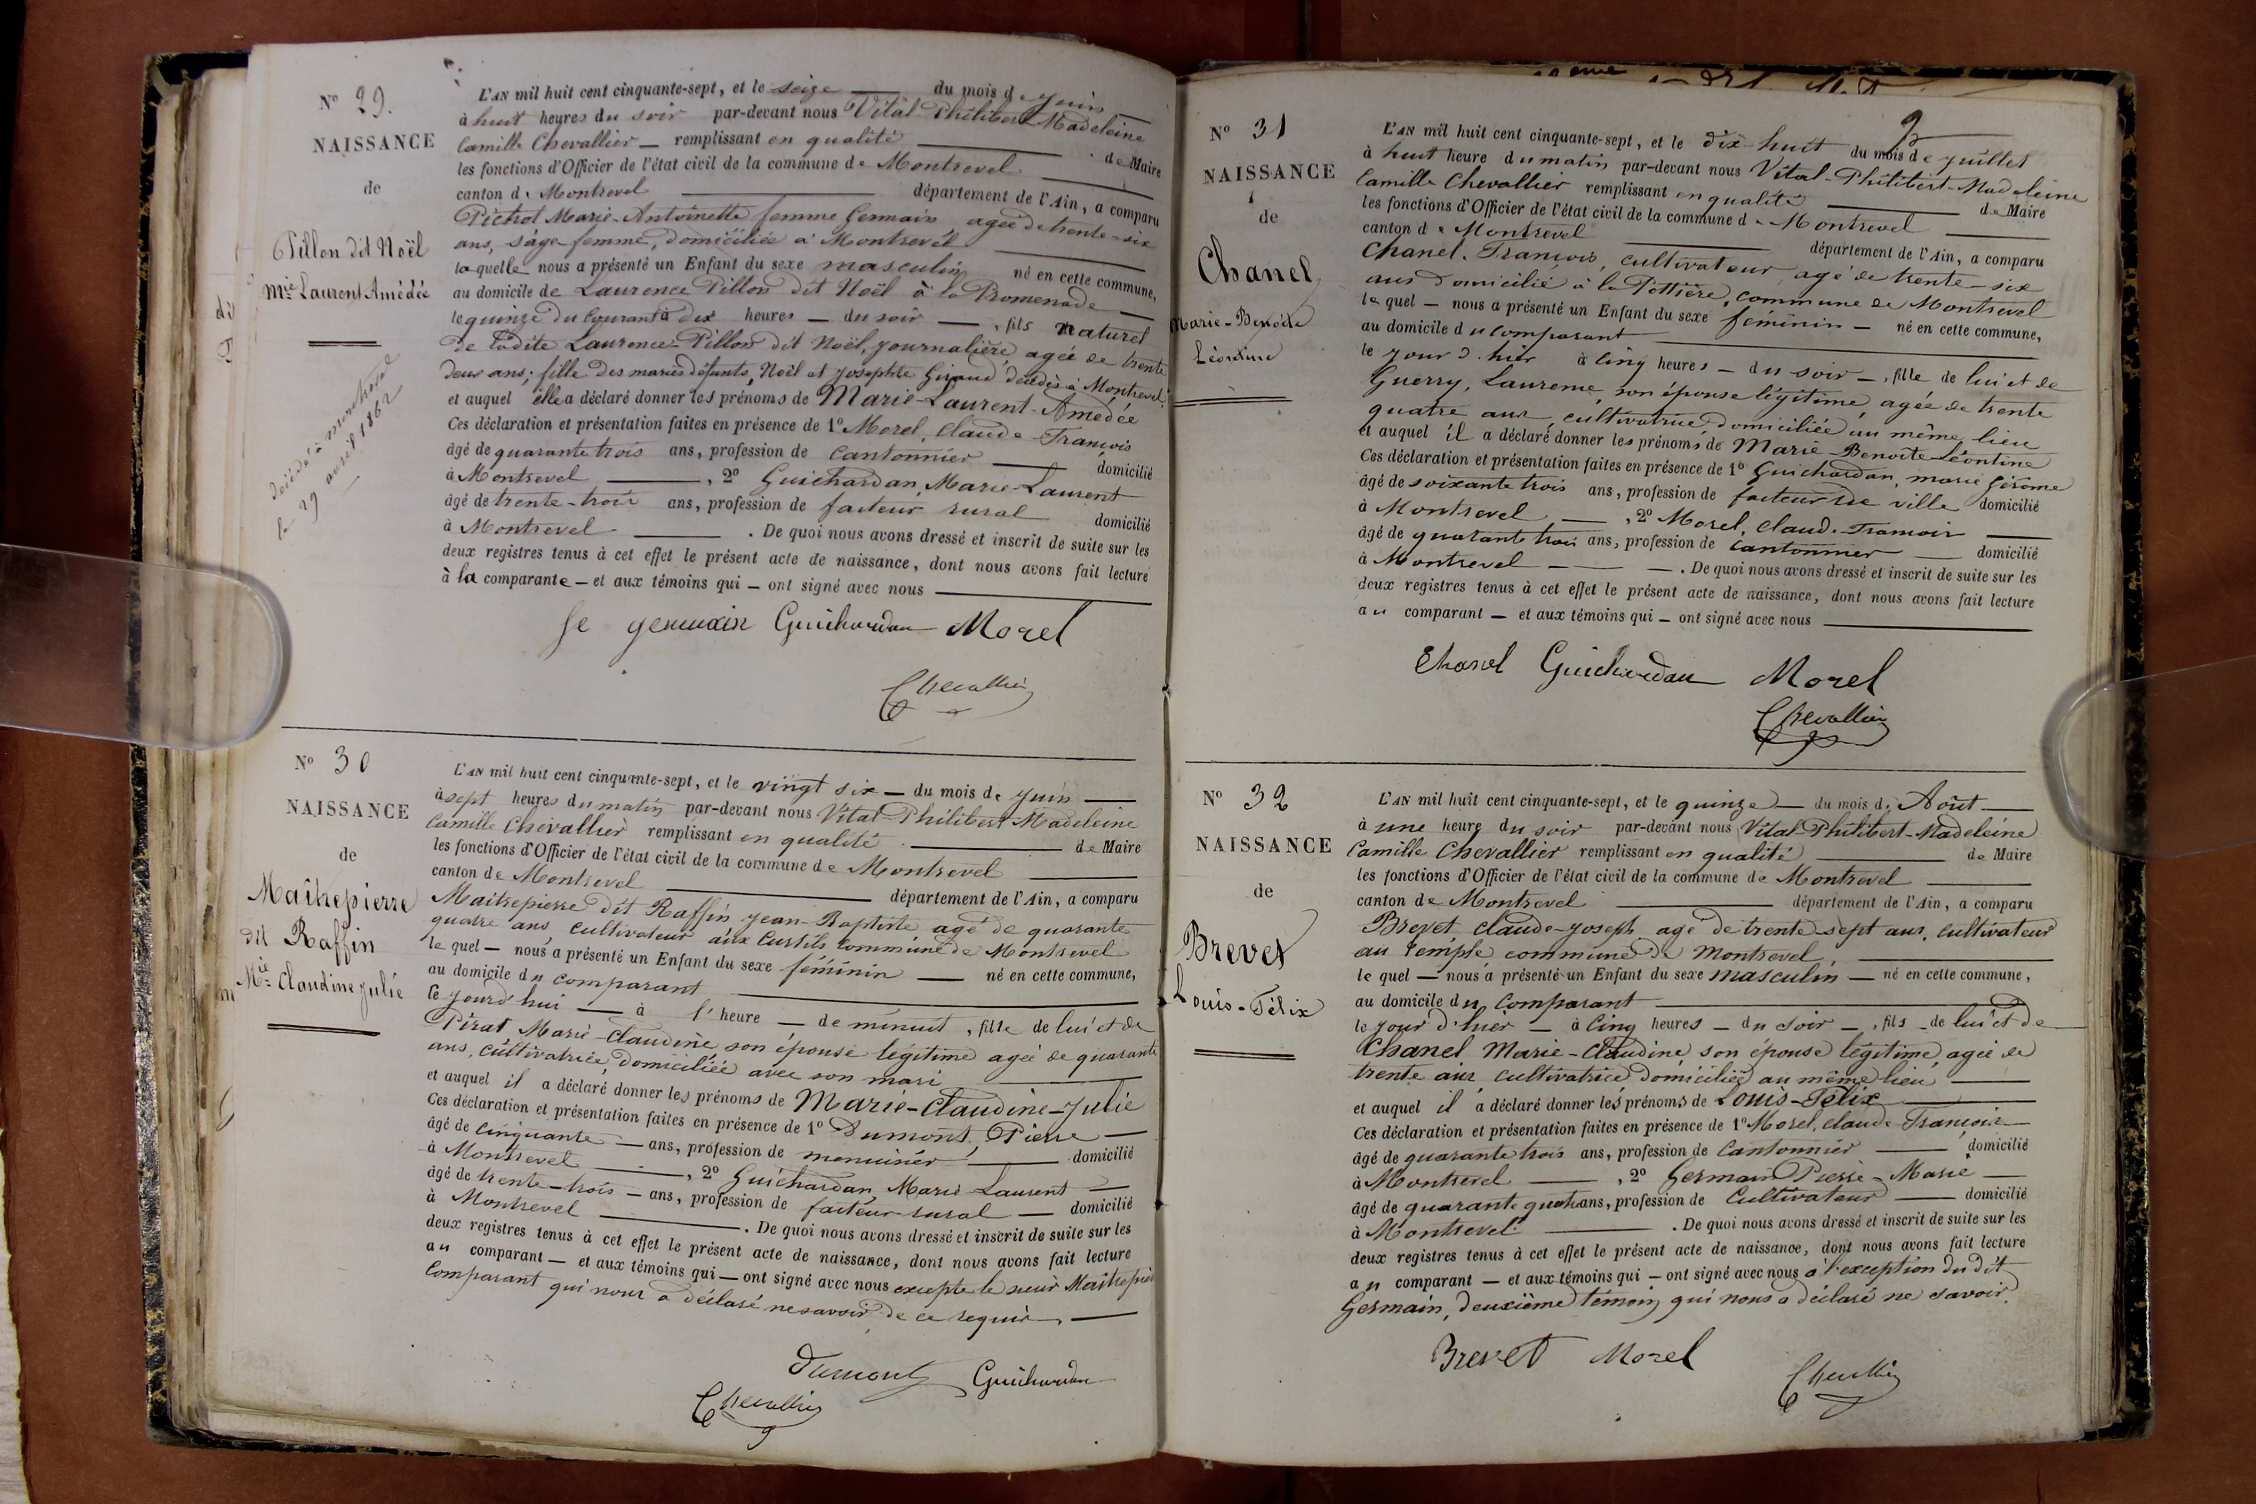 Nº 29.
NAISSANCE
de
Pillon dit Noël
Mie Laurent Amédée
décédé à montrevel
le 29 avril 1862
L'AN mil huit cent cinquante-sept, et le seize du mois de juin
à huit heures du soir par-devant nous Vital-Philibert-Madeleine
Camille Chevallier remplissant en qualité de Maire
les fonctions d'Officier de l'état civil de la commune de Montrevel
canton de Montrevel département de l'Ain, a comparu
Marie-Antoinette femme Germain agée de trente-six
ans, sage-femme, domiciliée à Montrevel
laquelle nous a présenté un Enfant du sexe masculin né en cette commune,
au domicile de Laurence Pillon dit Noël à la Promenade
le quinze du courant à dix heures du soir, fils naturel
de ladite Laurence Pillon dit Noël, journalière, agée de trente
deux ans; fille des mariés défunts, Noël et Josephte Giraud décédés à Montrevel.
et auquel elle a déclaré donner les prénoms de Marie-Laurent-Amédée
Ces déclaration et présentation faites en présence de 1º Morel, Claude-François
âgé de quarante trois ans, profession de cantonnier domicilié
à Montrevel, 2º Guichardan, Marie-Laurent
âgé de trente-trois ans, profession de facteur rural domicilié
à Montrevel. De quoi nous avons dressé et inscrit de suite sur les
deux registres tenus à cet effet le présent acte de naissance, dont nous avons fait lecture
à la comparante et aux témoins qui ont signé avec nous
fe germain Guichardan Morel
Chevallier
Nº 30
NAISSANCE
de
Maîtrepierre
dit Raffin
Mie Claudine Julie
L'AN mil huit cent cinquante-sept, et le vingt six du mois de juin
à sept heures du matin par-devant nous Vital Philibert Madeleine
Camille Chevallier remplissant en qualité de Maire
les fonctions d'Officier de l'état civil de la commune de Montrevel
canton de Montrevel département de l'Ain, a comparu
Maitrepierre dit Raffin Jean-Baptiste agé de quarante
quatre ans cultivateur aux Curtils commune de Montrevel
lequel nous a présenté un Enfant du sexe féminin né en cette commune,
au domicile du comparant
ce jourd'hui à l'heure de minuit, fille de lui et de
Pirat Marie-Claudine son épouse légitime agée de quarante
ans, cultivatrice, domiciliée avec son mari
et auquel il a déclaré donner les prénoms de Marie-Claudine-Julie
Ces déclaration et présentation faites en présence de 1º Dumont, Pierre
âgé de cinquante ans, profession de menuisier domicilié
à Montrevel, 2º Guichardan Marie Laurent
âgé de trente-trois ans, profession de facteur rural domicilié
à Montrevel. De quoi nous avons dressé et inscrit de suite sur les
deux registres tenus à cet effet le présent acte de naissance, dont nous avons fait lecture
au comparant et aux témoins qui ont signé avec nous excepté le sieur Maîtrepierre
comparant qui nous a déclaré ne savoir de ce requis
Dumont Guichardan
Chevallier
Nº 31
NAISSANCE
de
Chanel
Marie-Benoite
Léontine
L'AN mil huit cent cinquante-sept, et le dix-huit du mois de juillet
à huit heure du matin par-devant nous Vital-Philibert-Madeleine
Camille Chevallier remplissant en qualité de Maire
les fonctions d'Officier de l'état civil de la commune de Montrevel
canton de Montrevel département de l'Ain, a comparu
Chanel, François, cultivateur, agé de trente-six
ans domicilié à la commune de Montrevel
lequel nous a présenté un Enfant du sexe féminin né en cette commune,
au domicile du comparant
le jour d'hier à cinq heures du soir, fille de lui et de
Guerry, Laurence, son épouse légitime, agée de trente
quatre ans cultivatrice domiciliée au même lieu
et auquel il a déclaré donner les prénoms de Marie-Benoite-Léontine
Ces déclaration et présentation faites en présence de 1º Guichardan, marie Gérome
âgé de soixante trois ans, profession de facteur de ville domicilié
à Montrevel, 2º Morel, Claude-François
âgé de quarante trois ans, profession de cantonnier domicilié
à Montrevel. De quoi nous avons dressé et inscrit de suite sur les
deux registres tenus à cet effet le présent acte de naissance, dont nous avons fait lecture
au comparant et aux témoins qui ont signé avec nous
Chanel Guichardan Morel
Chevallier
Nº 32
NAISSANCE
de
Brevet
Louis-Félix
L'AN mil huit cent cinquante-sept, et le quinze du mois de Août
à une heure du soir par-devant nous Vital-Philibert-Madeleine
Camille Chevallier remplissant en qualité de Maire
les fonctions d'Officier de l'état civil de la commune de Montrevel
canton de Montrevel département de l'Ain, a comparu
Brevet, Claude-Joseph agé de trente-sept ans, cultivateur
au temple commune de Montrevel,
lequel nous a présenté un Enfant du sexe masculin né en cette commune,
au domicile du comparant
le jour d'hier à cinq heures du soir, fils de lui et de
Chanel Marie-Claudine, son épouse légitime, agée de
trente ans cultivatrice domiciliée au même lieu
et auquel il a déclaré donner les prénoms de Louis-Félix
Ces déclaration et présentation faites en présence de 1º Morel, claude-François
âgé de quarante trois ans, profession de Cantonnier domicilié
à Montrevel, 2º Germain Pierre-Marie
âgé de quarante quatre ans, profession de Cultivateur domicilié
à Montrevel. De quoi nous avons dressé et inscrit de suite sur les
deux registres tenus à cet effet le présent acte de naissance, dont nous avons fait lecture
au comparant et aux témoins qui ont signé avec nous à l'exception du dit
Germain, deuxième témoin qui nous a déclaré ne savoir.
Brevet Morel
Chevallier